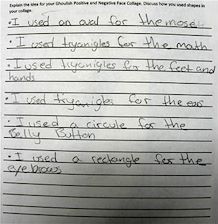 Explain the idea for your Ghoulish Positive and Negative Face Collage. Discuss how you used shapes in
your collage.
• I used an oval for the nose
• I used tryanigles for the math
• I used tryanigles for the feet and
hands
• I used tryanigles for the ears
• I used a circule for the
Belly Button
• I used a rectangle for the
eye brows